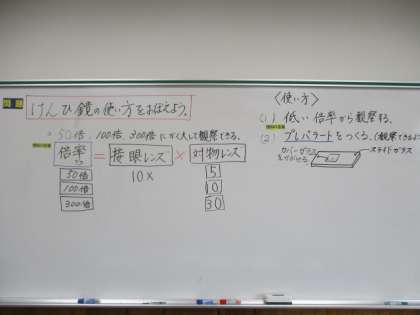 けんび鏡の使い方をおぼえよう。
50倍、100倍、300倍にかく大して観察できる。
倍率 = 接眼レンズ × 対物レンズ
50倍 10× 5
100倍 10
300倍 30
〈使い方〉
(1) 低い倍率から観察する。
(2) プレパラートをつくる。(観察できるよ
カバーガラス
をかぶせる。
スライドガラス